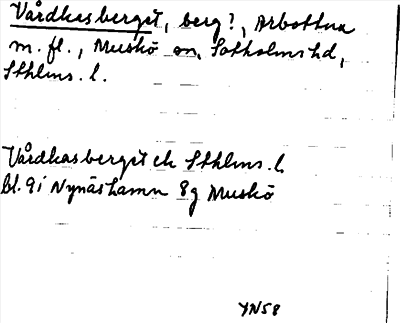 Vårdkasberget, berg?, Arbottna
m. fl., Muskö sn, Sotholms hd,
Sthlms. l.
Vårdkasberget ek Sthlms. l.
bl. 9i Nynäshamn 8g Muskö
YN58